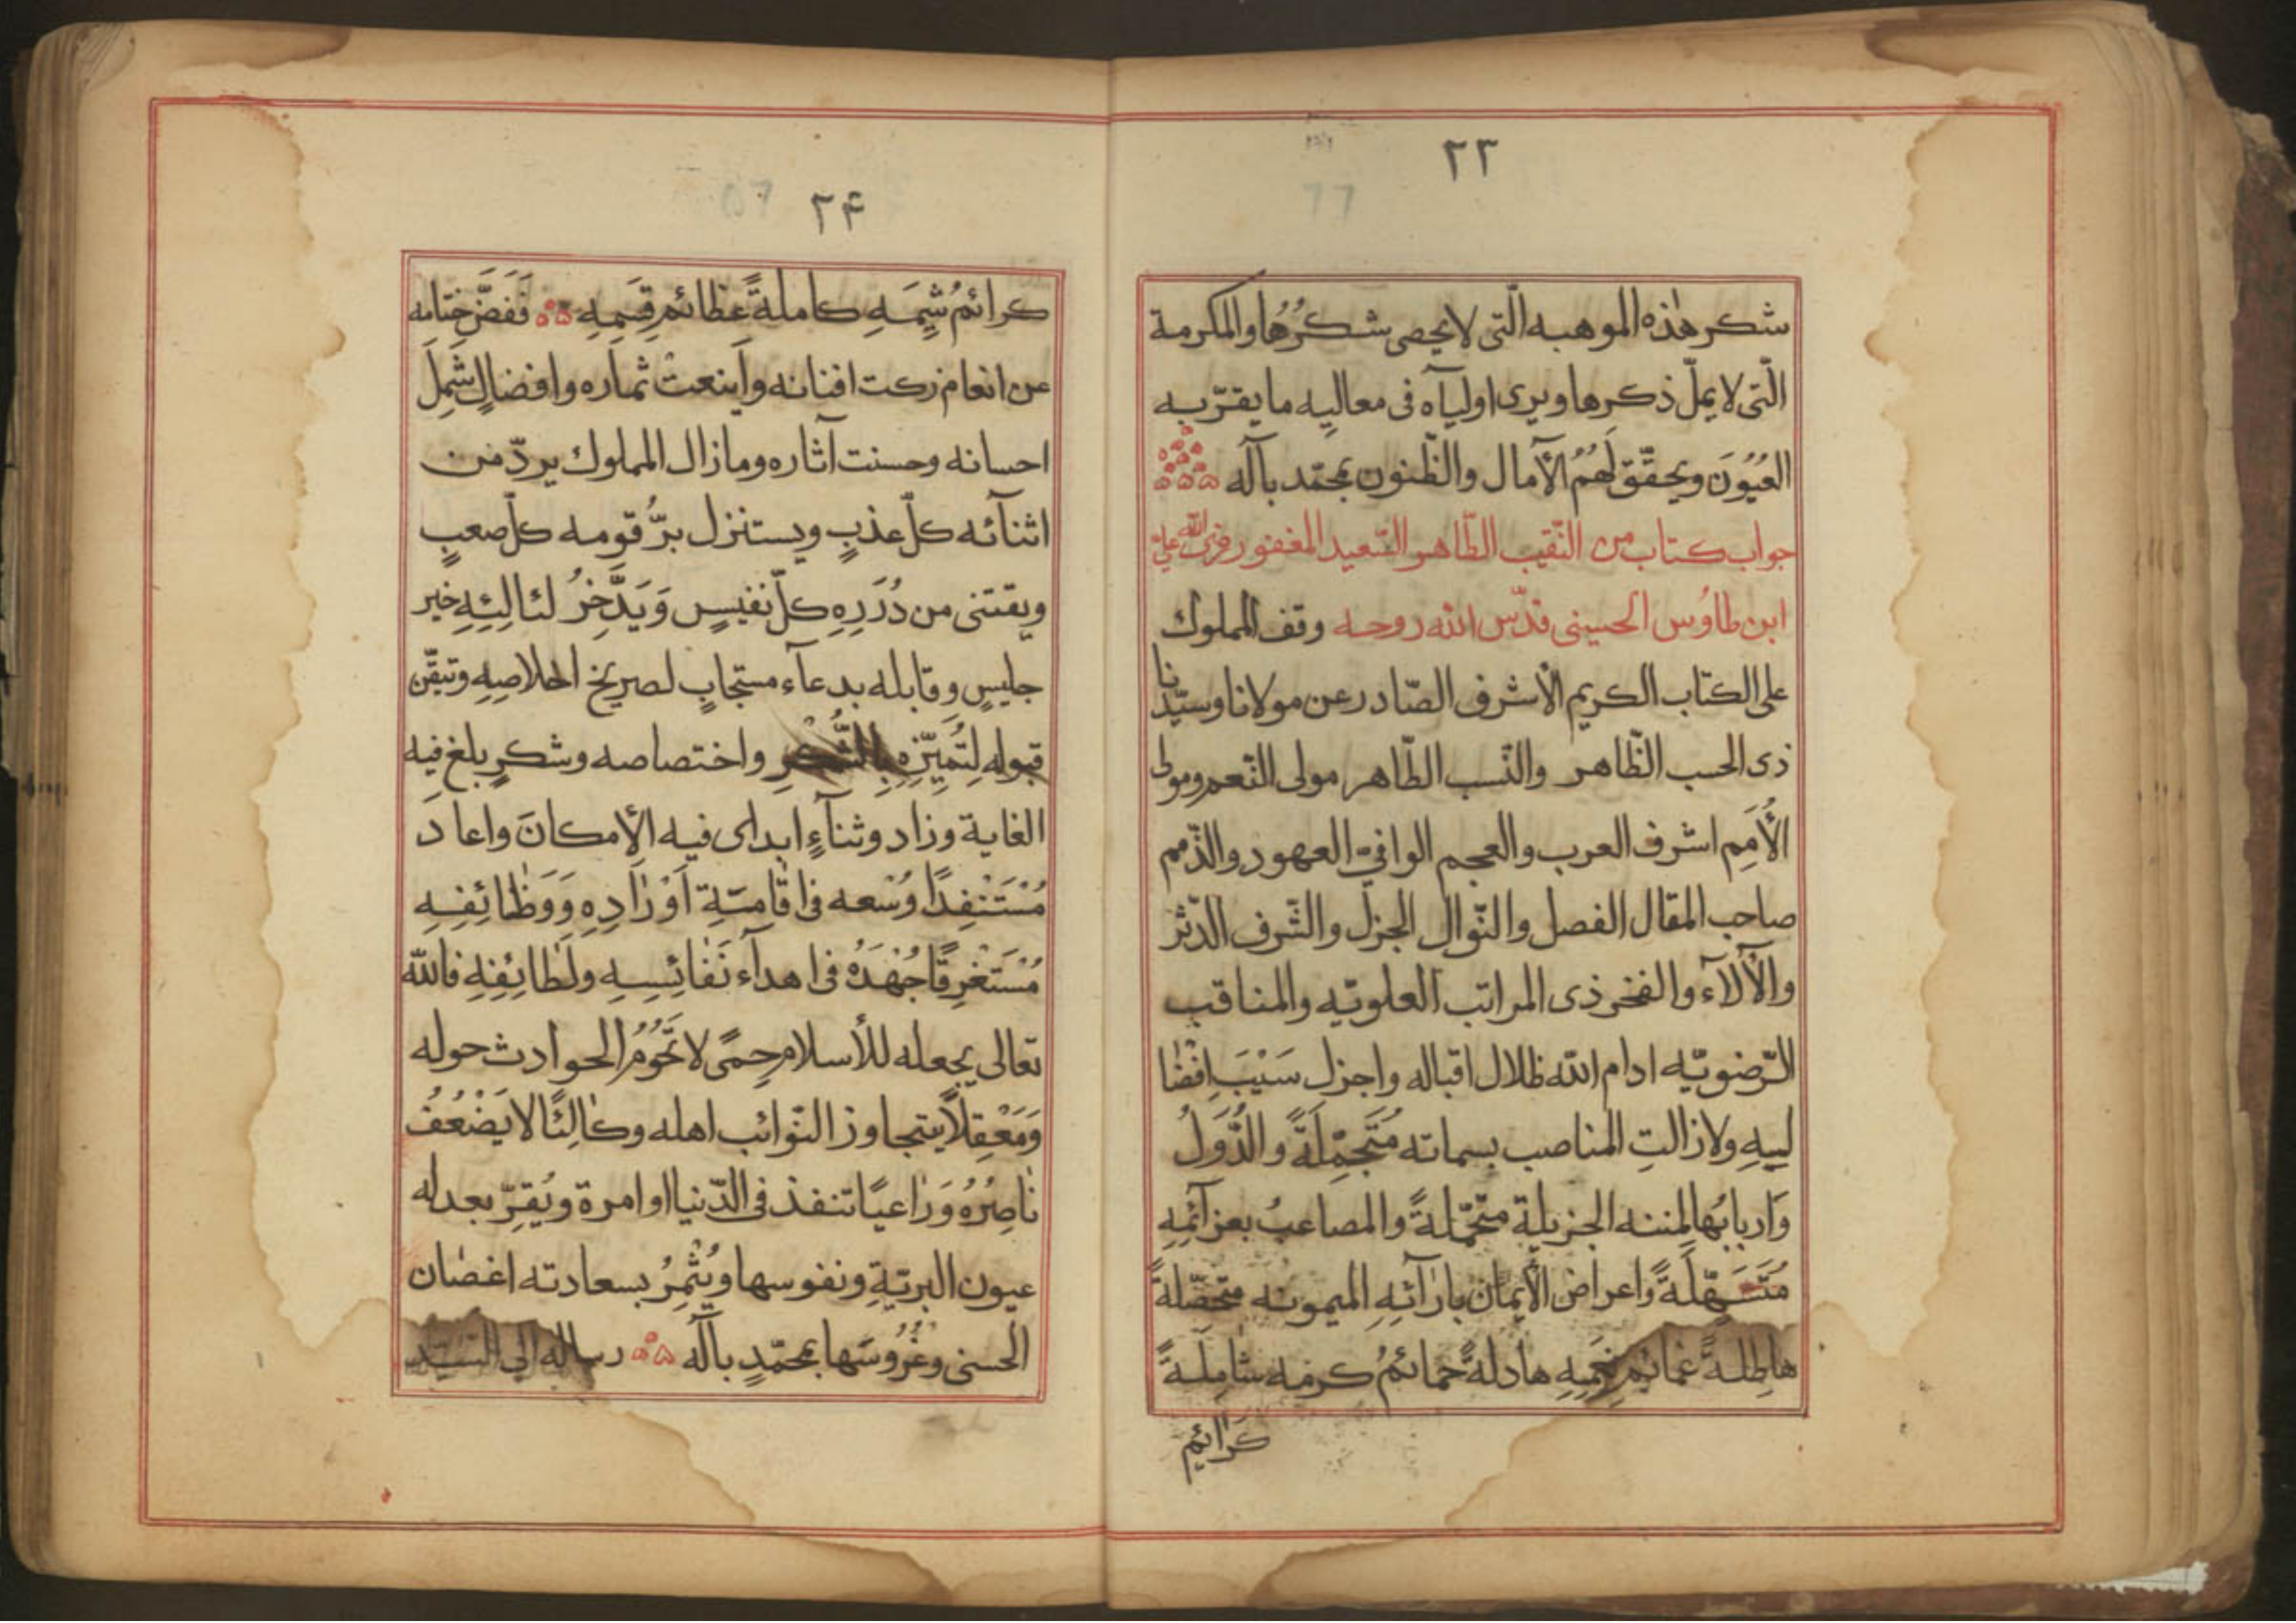 ٢٣
شكر هٰذه الموهبه الّتى لا يحصى شكرُهُا والمكرمة
الّتى لا يملّ ذكرها ويرى اوليآه فى معاليه ما يقرّبه
العُيُوُنَ ويحقّق لَهُمُ الآمال والظّنون بمحمّد بآله
جواب كتاب من النّقيب الطّاهر السّعيد المغفور رضى الله على
ابن طاوُس الحسينى قدّس الله روحه وقف المملوك
على الكتاب الكريم الأشرف الصّادر عن مولانا وسيّدنا
ذى الحسب الظّاهر والنّسب الطّاهر مولى النّعم ومولى
الأُمَمِ اشرف العرب والعجم الوافىّ العهود والذّمم
صاحب المقال الفصل والنّوال الجزل والشّرف الدّثر
والألآء والفخر ذى المراتب العلويّه والمناقب
الرّضويّه ادام الله ظلال اقباله واجزل سَيْبَ اِفْضٰا
ليِهِ ولا زالتِ المناصب بسماته مُتَجمِّلَةً والدُّوَلُ
وَاربابُها لمننه الجزيلة متحمّلةً والمصاعبُ بعزآئمِهِ
مُتَسَهِّلَةً واعراض الأيمان بارٰآئهِ الميمونه متحصّلةً
هاطِلةً غمائم نِعَمِهِ هادلةً حمائمُ كرمه شٰامِلَةً
كرٰائم
٢۴
كرائمُ شِيَمَهِ كاملةً عظائم قِسَمِهِ فَفَضَّ خِتامه
عن انعام زكت افنانه وأينعتْ ثماره وافضالٍ شَمِلَ
احسانه وحسنت آثاره ومازال المملوك يردّ من
اثنآئه كلّ عذبٍ ويستنزل برُّ قومه كلّ صعبٍ
ويقتنى من دُرَرِهِ كلّ نفيسٍ وَيَدَّخِرُ لئالِئِهِ خير
جليسٍ وقابله بدعآء مستجابٍ لصريخ اخلاصِهِ وتيقّن
قبوله لِتُمَيِّزِهِ بِالشُّكْرِ واختصاصه وشكرٍ بلغ فيه
الغاية وزاد وثنآءٍ ابدأى فيه الأمكانَ واعادَ
مُسْتَنْفِدًا وُسْعه فى اقامَتِهِ اَوْرٰادِهِ وَوَظٰائِفِهِ
مُسْتَغْرِقًا جُهْدَهُ فى اهدآء نَفٰائِسِهِ ولَطٰائِفِهِ فالله
تعالى يجعله للأسلام حِمىً لا تَحُومُ الحوادث حوله
وَمَعْقِلاً يتجاوز النّوائب اهله وكٰالِئًا لا يَضْعُفُ
نٰاصِرُهُ وَرٰاعيًا تنفذ فى الدّنيا اوامرة ويُقِرّ بعدله
عيون البريّةِ ونفوسها ويُثْمِرُ بسعادته اغصٰان
الحسنى وغُرُوُسَها بمحمّدٍ بآلهِ رساله الى السّيّد